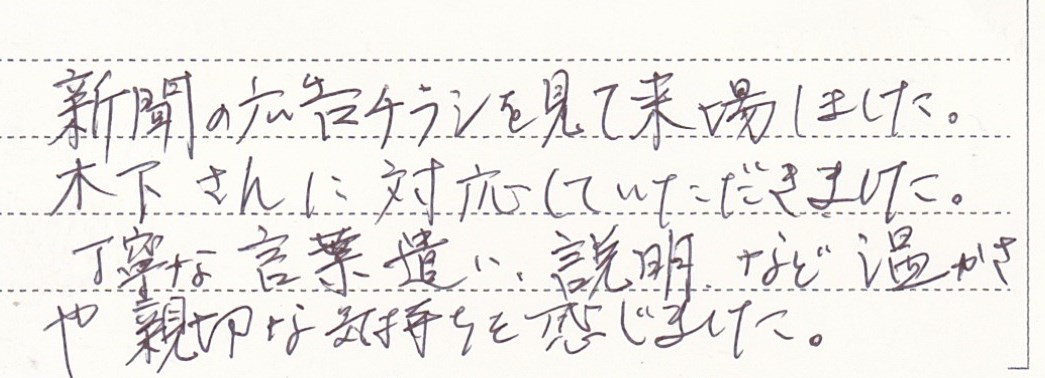 新聞の広告チラシを見て来場しました。
木下さんに対応していただきました。
丁寧な言葉遣い、説明など温かさ
や親切な気持ちを感じました。